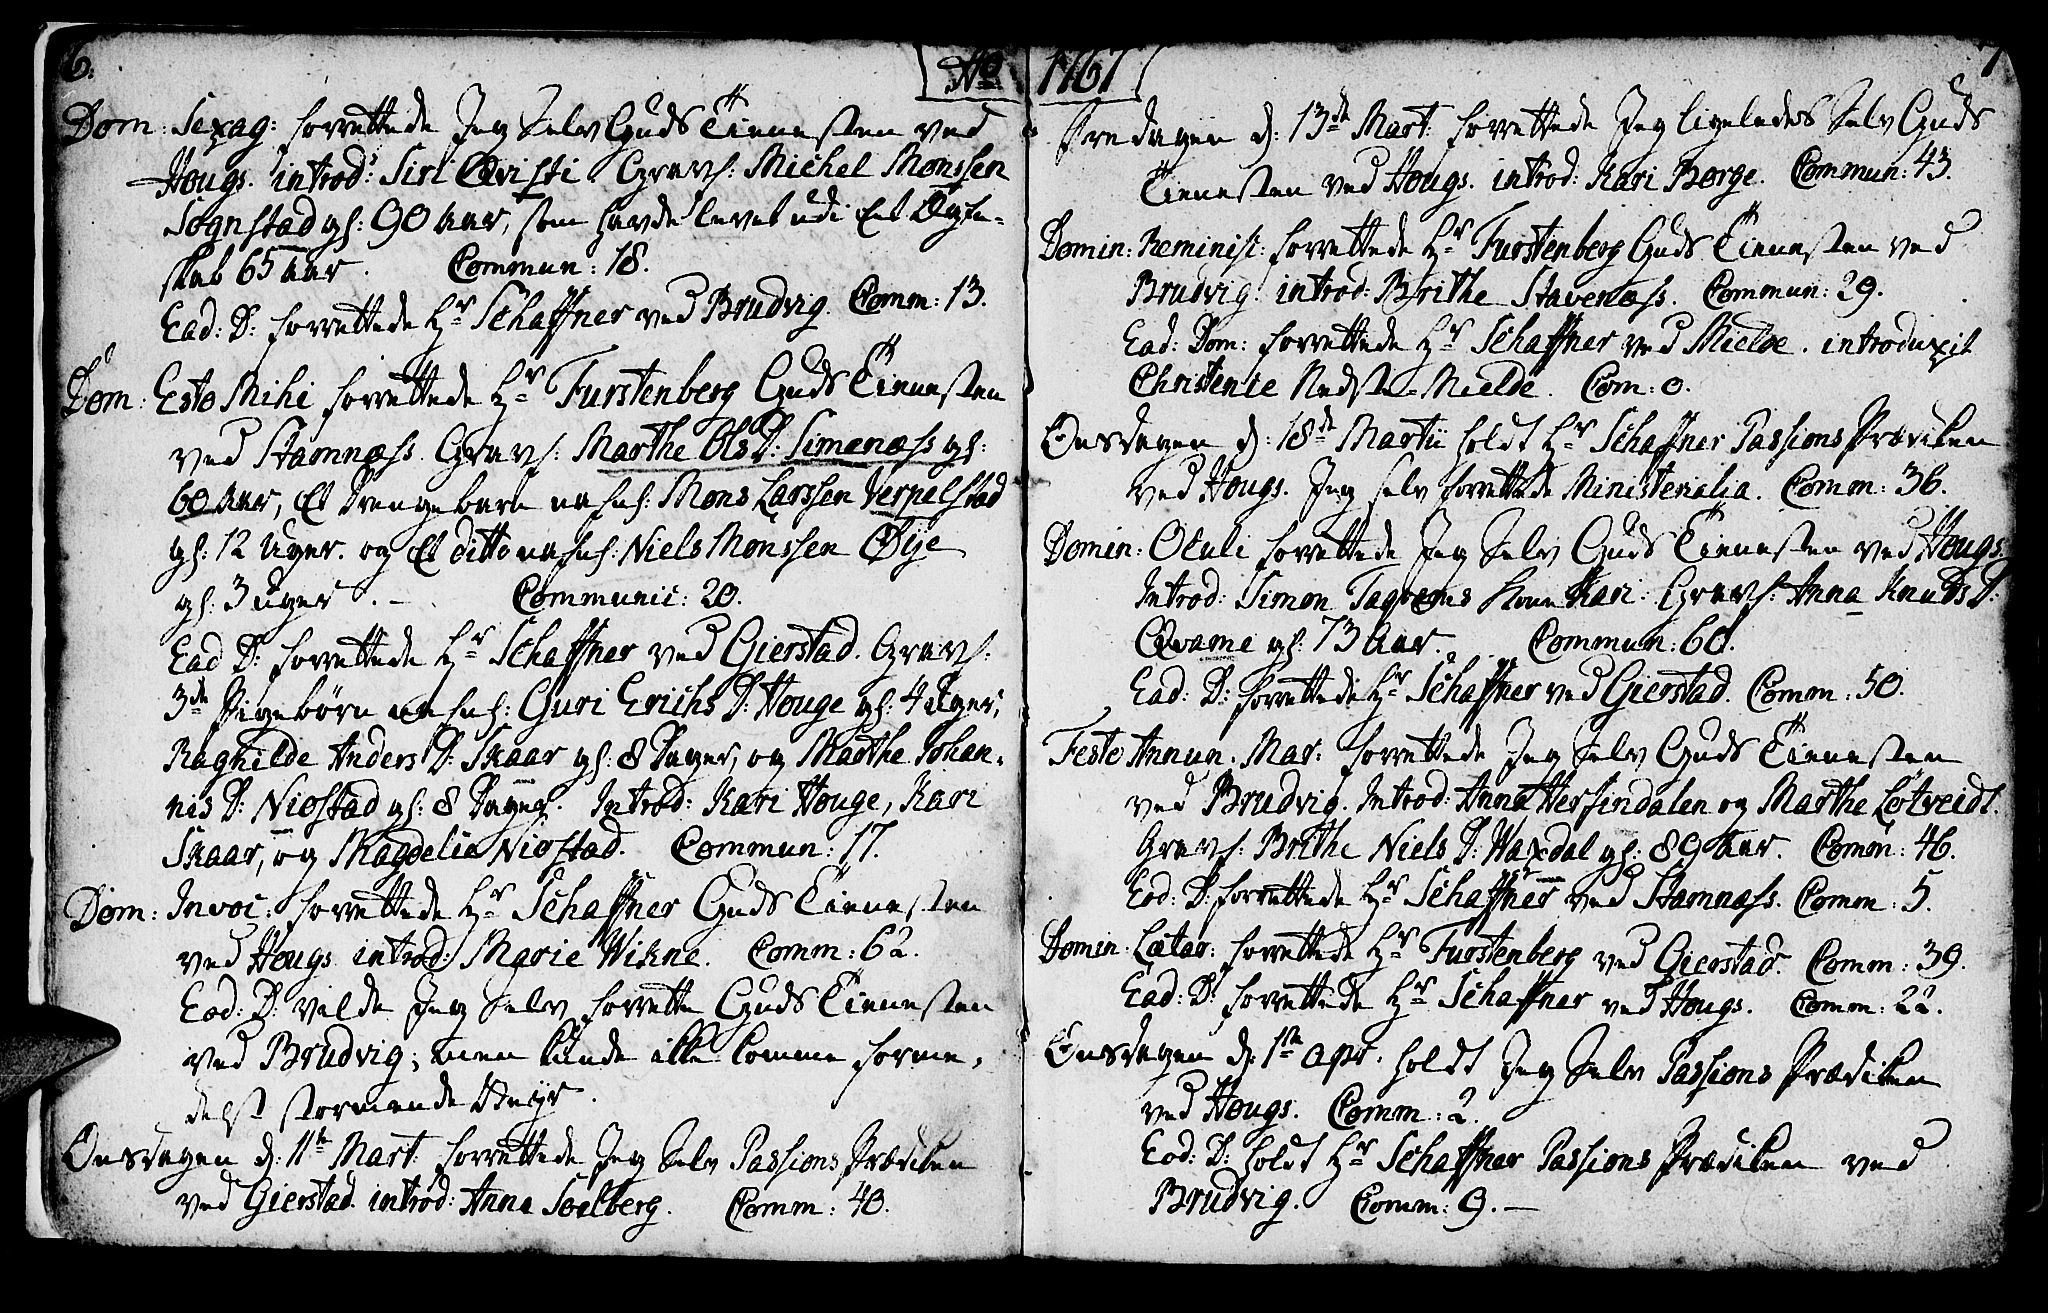 6.
Ao
Dom: Sexag: forrettede Jeg Selv Guds Tienesten ved
Hougs. introd: Siri Qvisti. Gravf: Michel Monssen
Sognstad gl: 90 Aar, som havde levet udi Et Ægte-
skab 65 Aar. Commun: 18.
Ead: D: forrettede Hr Schaffner ved Brudvig. Comm: 13.
Dom: Esto Mihi forrettede Hr Furstenberg Guds Tienesten
ved Stamnæss. Gravf: Marthe Ols D: Simenæss gl:
60 Aar, Et Drengebarn nafnl: Mons Larssen Verpelstad
gl: 12 Uger. og Et ditto nafnl: Niels Monssen Øÿe
gl: 3 uger. – Communic: 20.
Ead D: forrettede Hr Schaffner ved Gierstad. Gravf:
3de Pigebørn nafnl: Guri Erichs D: Houge gl: 4 Uger,
Raghilde Anders D: Skaar gl: 8 Dager, og Marthe Johan-
nis D: Niøstad gl: 8 Dages. Introd: Kari Houge, Kari
Skaar, og Magdelie Niøstad. Commun: 17.
Dom: Invoc: forrettede Hr Schaffner Guds Tienesten
ved Hougs introd: Marie Wikne. Comm: 62.
Eod: D: vilde Jeg Selv forrette Guds Tienesten
ved Brudvig; men kunde ikke komme forme-
delst stormende Veyr.
Onsdagen d: 11te Mart: forrettede Jeg Selv Passions Prædiken
ved Gierstad. introd: Anna Soelberg. Comm: 40.
1767
7
Fredagen d: 13de Mart: forrettede Jeg ligeledes Selv Guds
Tienesten ved Hougs. introd: Kari Borge. Commun: 43.
Domin: Reminisc: forrettede Hr Furstenberg Guds Tienesten ved
Brudvig. introd: Brithe Stavenæss. Commun: 29.
Ead: Dom: forrettede Hr Schaffner ved Mielde. introduxit
Christenie Nedste-Mielde. Com: 0.
Onsdagen d: 18de Martii holdt Hr Schaffner Passions Prædiken
ved Hougs. Jeg selv forrettede Ministerialia. Comm: 36.
Domin: Oculi forrettede Jeg Selv Guds Tienesten ved Hougs.
Introd: Simon Tagvems Kone Kari. Gravf: Anna Knuds D:
Qvame gl: 73 Aar. Commun: 60.
Ead: D: forrettede Hr Schaffner ved Gierstad. Comm: 50.
Festo Annun. Mar: forrettede Jeg Selv Guds Tienesten
ved Brudvig. Introd: Anna Herfindalen og Marthe Løtveidt.
Gravf: Brithe Niels D: Waxdal gl: 89 Aar. Comm: 46.
Eod: D: forrettede Hr Schaffner ved Stamnæss. Comm: 5.
Domin: Lætar: forrettede Hr Furstenberg ved Gierstad. Comm: 39.
Ead: D: forrettede Hr Schaffner ved Hougs. Comm: 22.
Onsdagen d: 1ste Apr. holdt Jeg Selv Passions Prædiken
ved Hougs. Comm: 2.
Eod: D: holdt Hr Schaffner Passions Prædiken ved
Brudvig. Comm: 9. –